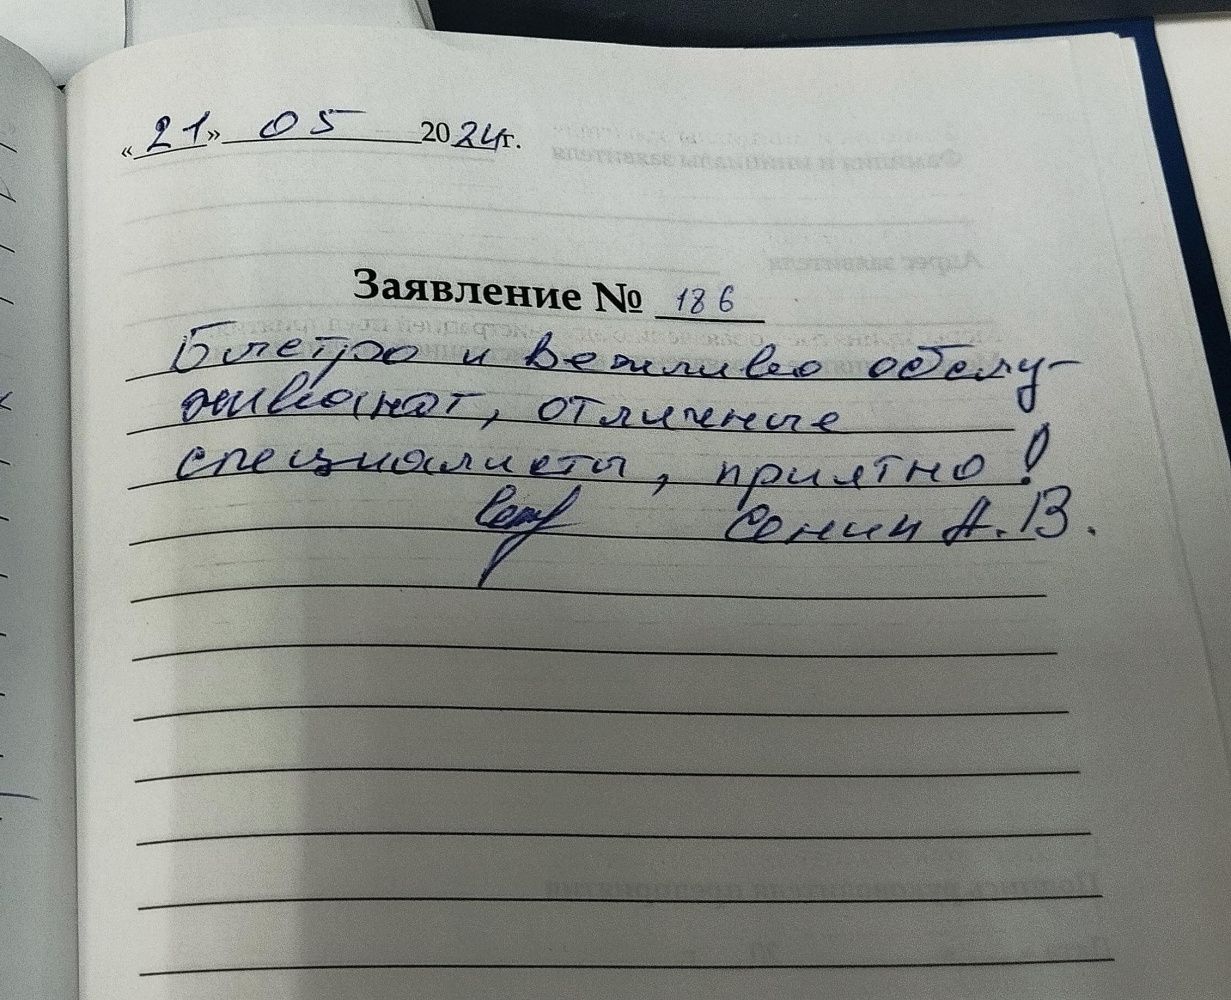 «21» 05 2024г.
Заявление № 186
Быстро и вежливо обслу-
живают, отличные
специалисты, приятно!
Сенин А.В.